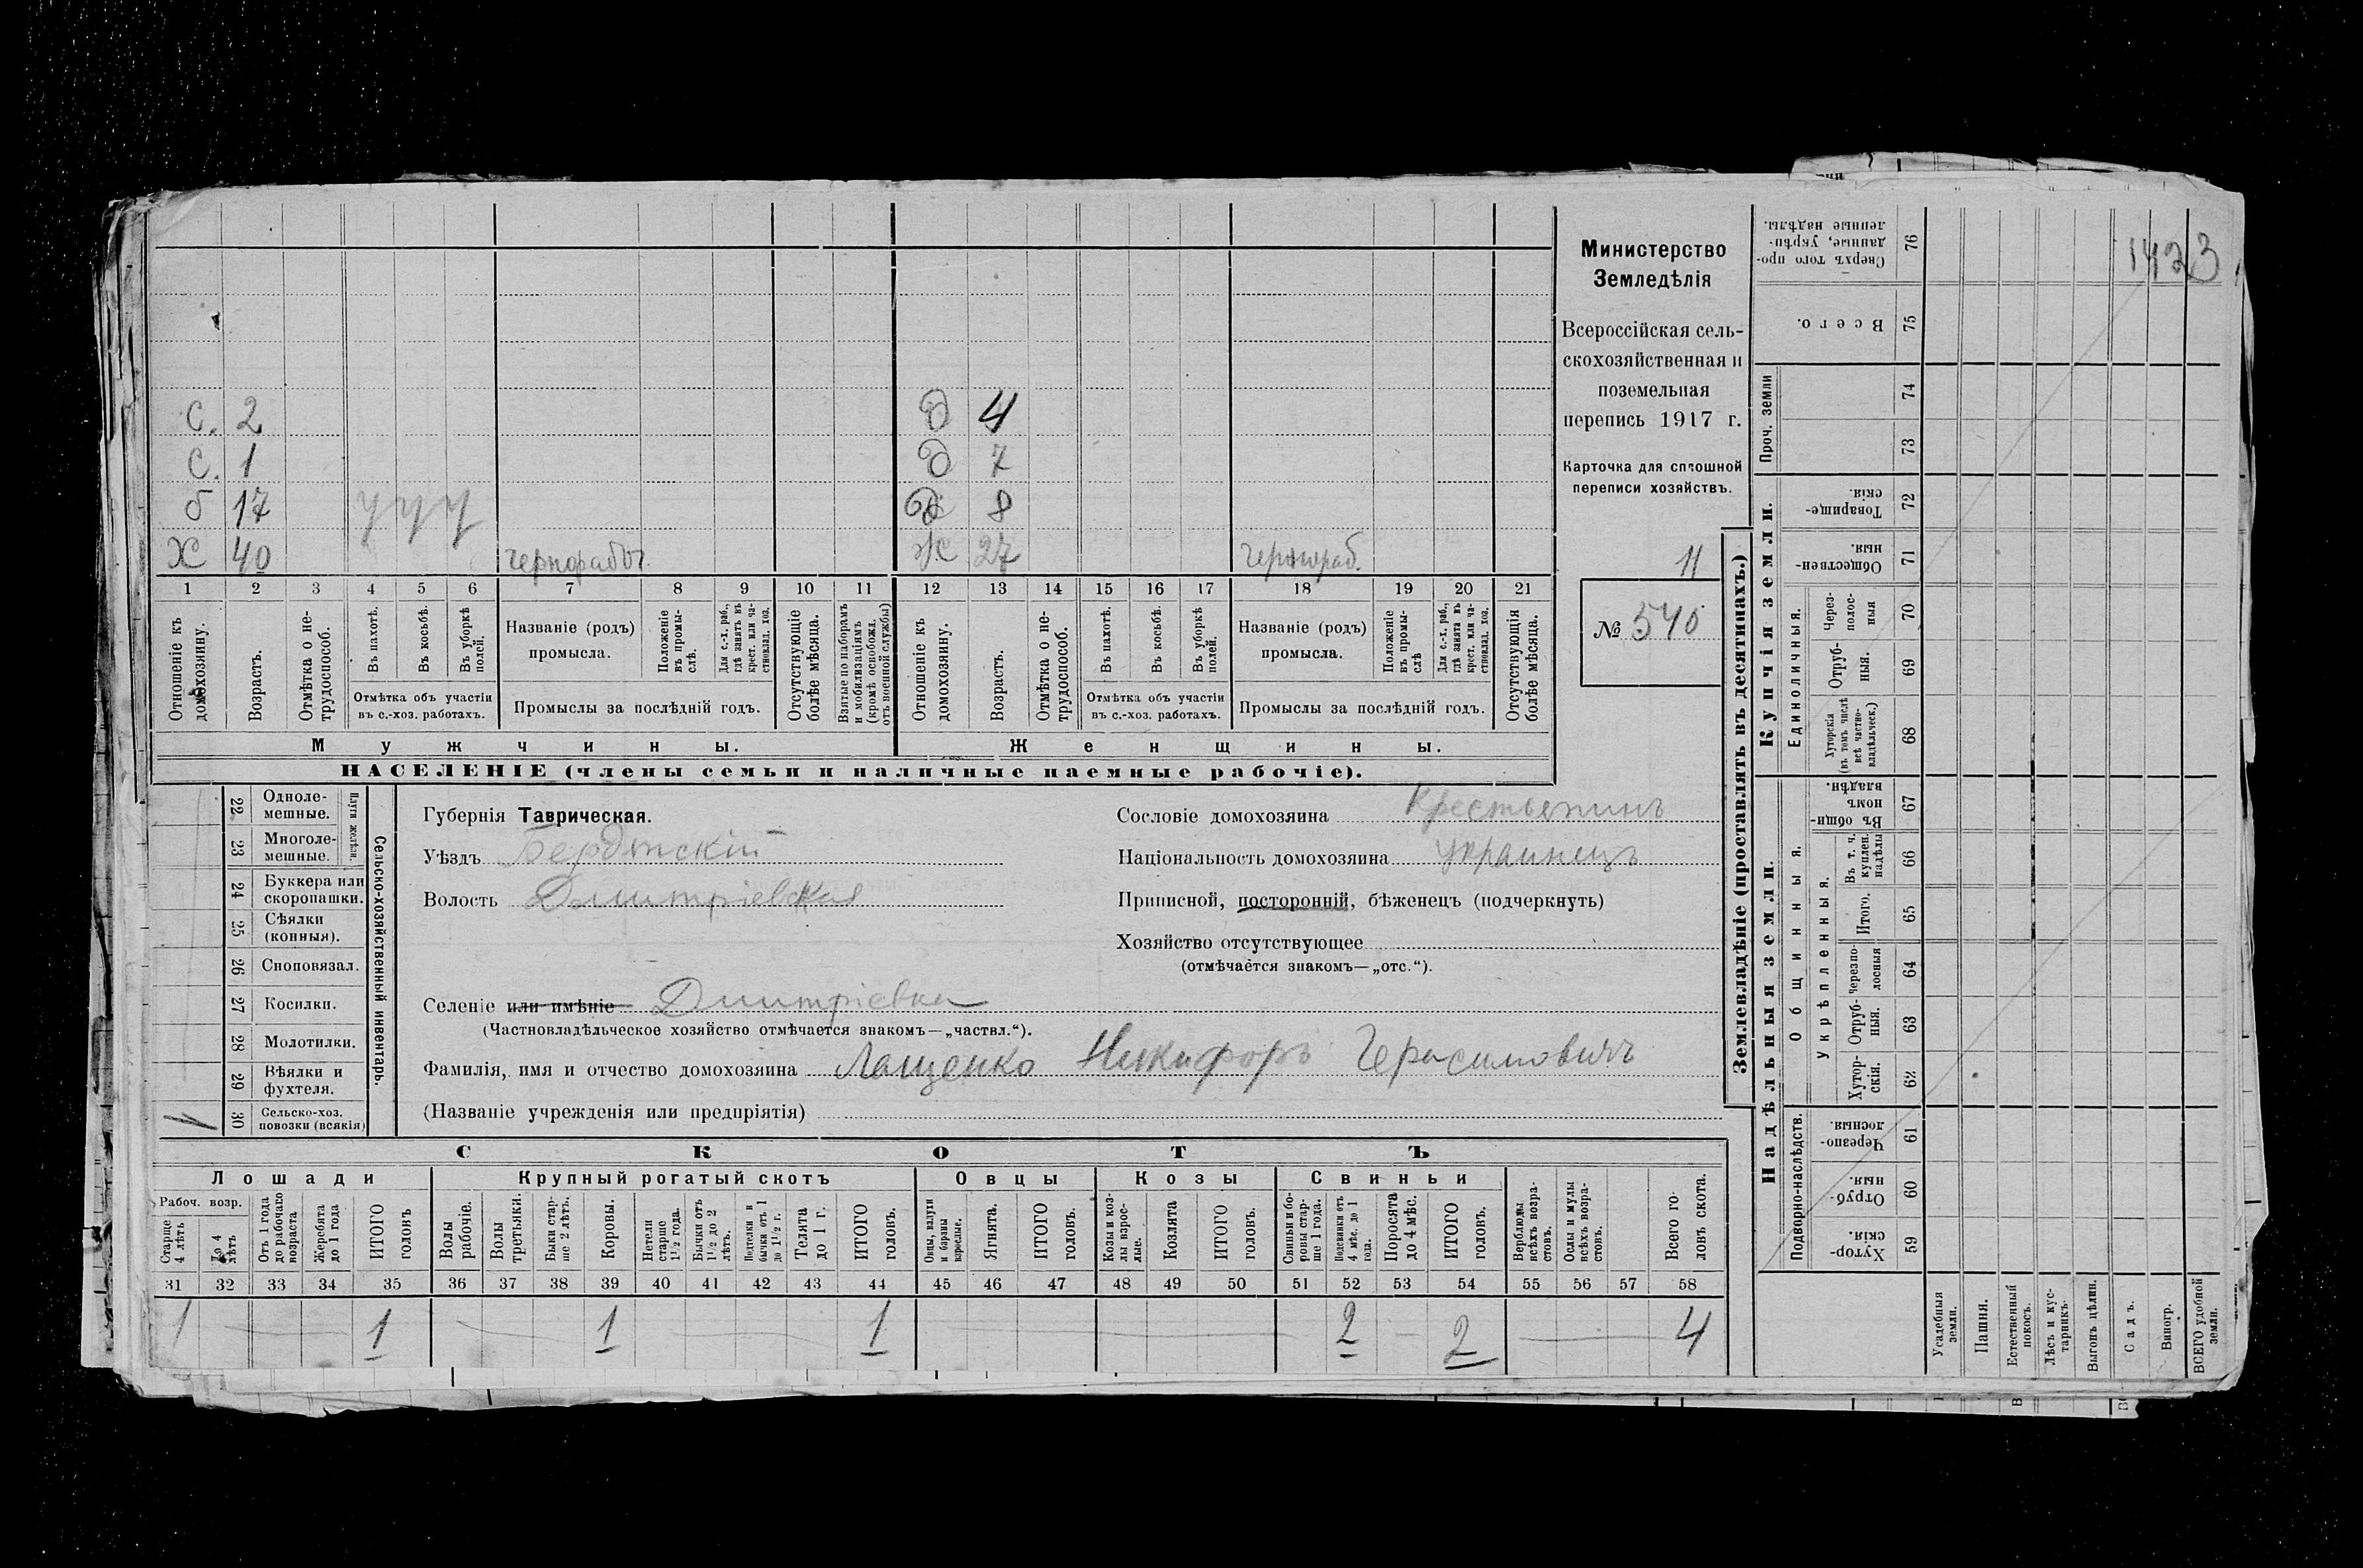 1423
Министерство
Земледѣлія
Всероссійская сель-
скохозяйственная и
поземельная
перепись 1917 г.
Карточка для сплошной
переписи хозяйствъ.
11
№ 540
С. 2 д 4
С. 1 д 7
б 17 у у у д 8
Х 40 чернорабоч. Ж 27 чернораб.
1 2 3 4 5 6 7 8 9 10 11 12 13 14 15 16 17 18 19 20 21
Отношеніе къ домохозяину.
Возрастъ.
Отмѣтка о не-
трудоспособ.
Въ пахотѣ.
Въ косьбѣ.
Въ уборкѣ полей.
Отмѣтка объ участіи
въ с.-хоз. работахъ.
Названіе (родъ)
промысла.
Положеніе въ промы-
слѣ.
Для с.-х. раб., гдѣ занятъ въ крест. или ча-
стновлад. хоз.
Промыслы за послѣдній годъ.
Отсутствующіе болѣе мѣсяца.
Взятые по наборамъ и мобилизаціямъ (кромѣ освобожд. отъ военной службы)
Отношеніе къ домохозяину.
Возрастъ.
Отмѣтка о не-
трудоспособ.
Въ пахотѣ.
Въ косьбѣ.
Въ уборкѣ полей.
Отмѣтка объ участіи
въ с.-хоз. работахъ.
Названіе (родъ)
промысла.
Положеніе въ промы-
слѣ
Для с.-х. раб., гдѣ занята въ крест. или ча-
стновлад. хоз.
Промыслы за послѣдній годъ.
Отсутствующія болѣе мѣсяца.
Мужчины. Женщины.
НАСЕЛЕНІЕ (члены семьи и наличные наемные рабочіе).
Сельско-хозяйственный инвентарь.
Плуги желѣзн.
22 Одноле-
мешные.
23 Многоле-
мешные.
24 Буккера или
скоропашки.
25 Сѣялки
(конныя).
26 Сноповязал.
27 Косилки.
28 Молотилки.
29 Вѣялки и
фухтеля.
1 30 Сельско-хоз.
повозки (всякія)
Губернія Таврическая.
Уѣздъ Бердянскій
Волость Дмитріевская
Сословіе домохозяина Крестьянинъ
Національность домохозяина Украинецъ
Приписной, посторонній, бѣженецъ (подчеркнуть)
Хозяйство отсутствующее
(отмѣчается знакомъ—„отс.“).
Селеніе или имѣніе Дмитріевка
(Частновладѣльческое хозяйство отмѣчается знакомъ—„частвл.“).
Фамилія, имя и отчество домохозяина Лащенко Никифоръ Герасимовичъ
(Названіе учрежденія или предпріятія)
СКОТЪ
Лошади Крупный рогатый скотъ Овцы Козы Свиньи
Рабоч. возр.
Старше 4 лѣтъ
До 4 лѣтъ
Отъ 1 года до рабочаго возраста
Жеребята до 1 года
ИТОГО головъ
Волы рабочіе.
Волы третьяки.
Быки стар-
ше 2 лѣтъ.
Коровы.
Нетели старше 1 1/2 года.
Бычки отъ 1 1/2 до 2 лѣтъ.
бычки отъ 1 до 1 1/2 г.
Телята до 1 г.
ИТОГО головъ.
Овцы, валухи и бараны взрослые.
Ягнята.
ИТОГО головъ.
Козы и коз-
лы взрос-
лые.
Козлята
ИТОГО головъ.
Свиньи и бо-
ровы стар-
ше 1 года.
Подсвинки отъ 4 мѣс. до 1 года.
Поросята до 4 мѣс.
ИТОГО головъ.
Верблюды всѣхъ возра-
стовъ.
Ослы и мулы всѣхъ возра-
стовъ.
Всего го-
ловъ скота.
31 32 33 34 35 36 37 38 39 40 41 42 43 44 45 46 47 48 49 50 51 52 53 54 55 56 57 58
1 1 1 1 2 2 4
Землевладѣніе (проставлять въ десятинахъ.)
Купчія земли.
Надѣльныя земли.
Сверхъ того про-
данные, укрѣп-
ленные надѣлы.
76
Всего.
75
Проч. земли
74
73
Товарище-
скія.
72
Обществен-
ныя.
71
Единоличныя.
Через-
полос-
ныя
70
Отруб-
ныя.
69
Хуторскія (въ томъ числѣ всѣ частно-
владѣльческ.)
68
Общинныя.
Въ общин-
номъ владѣн.
67
Укрѣпленныя.
Въ т. ч. куплен. надѣлы
66
Итого.
65
Черезпо-
лосныя
64
Отруб-
ныя.
63
Хутор-
скія.
62
Подворно-наслѣдств.
Черезпо-
лосныя.
61
Отруб-
ныя.
60
Хутор-
скія.
59
Усадебныя земли.
Пашня.
Естественный покосъ.
Лѣсъ и кус-
тарникъ.
Выгонъ цѣлин.
Садъ.
Виногр.
ВСЕГО удобной земли.